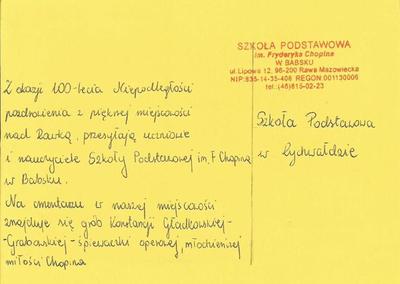 SZKOŁA PODSTAWOWA
im. Fryderyka Chopina
W BABSKU
ul. Lipowa 12, 96-200 Rawa Mazowiecka
NIP: 835-14-35-406 REGON: 001130006
tel.: (46)815-02-23
Z okazji 100-lecia Niepodległości
pozdrowienia z pięknej miejscowości
nad Rawką, przesyłają uczniowie
i nauczyciele Szkoły Podstawowej im. F. Chopina
w Babsku.
Na cmentarzu w naszej miejscowości
znajduje się grób Konstancji Gładkowskiej-
-Grabowskiej - śpiewaczki operowej, młodzieńczej
miłości Chopina
Szkoła Podstawowa
w Łychwałdzie